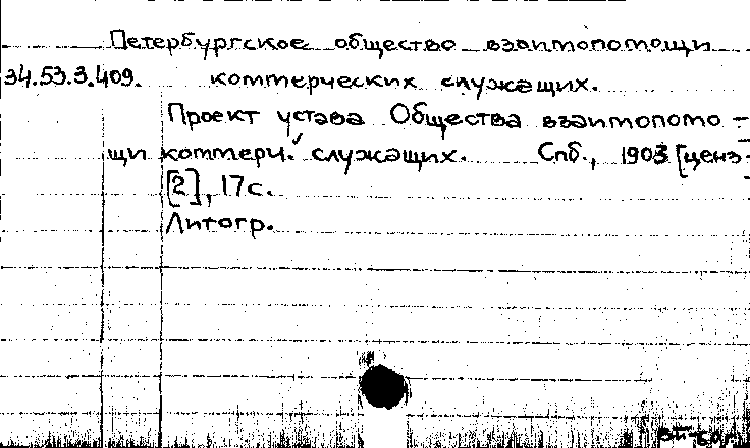 Петербургское общество взаимопомощи
34.53.3.409. коммерческих служащих.
Проект устава Общества взаимопомо-
щи коммерч. служащих. Спб., 1903 [ценз.
[2], 17с.
Литогр.